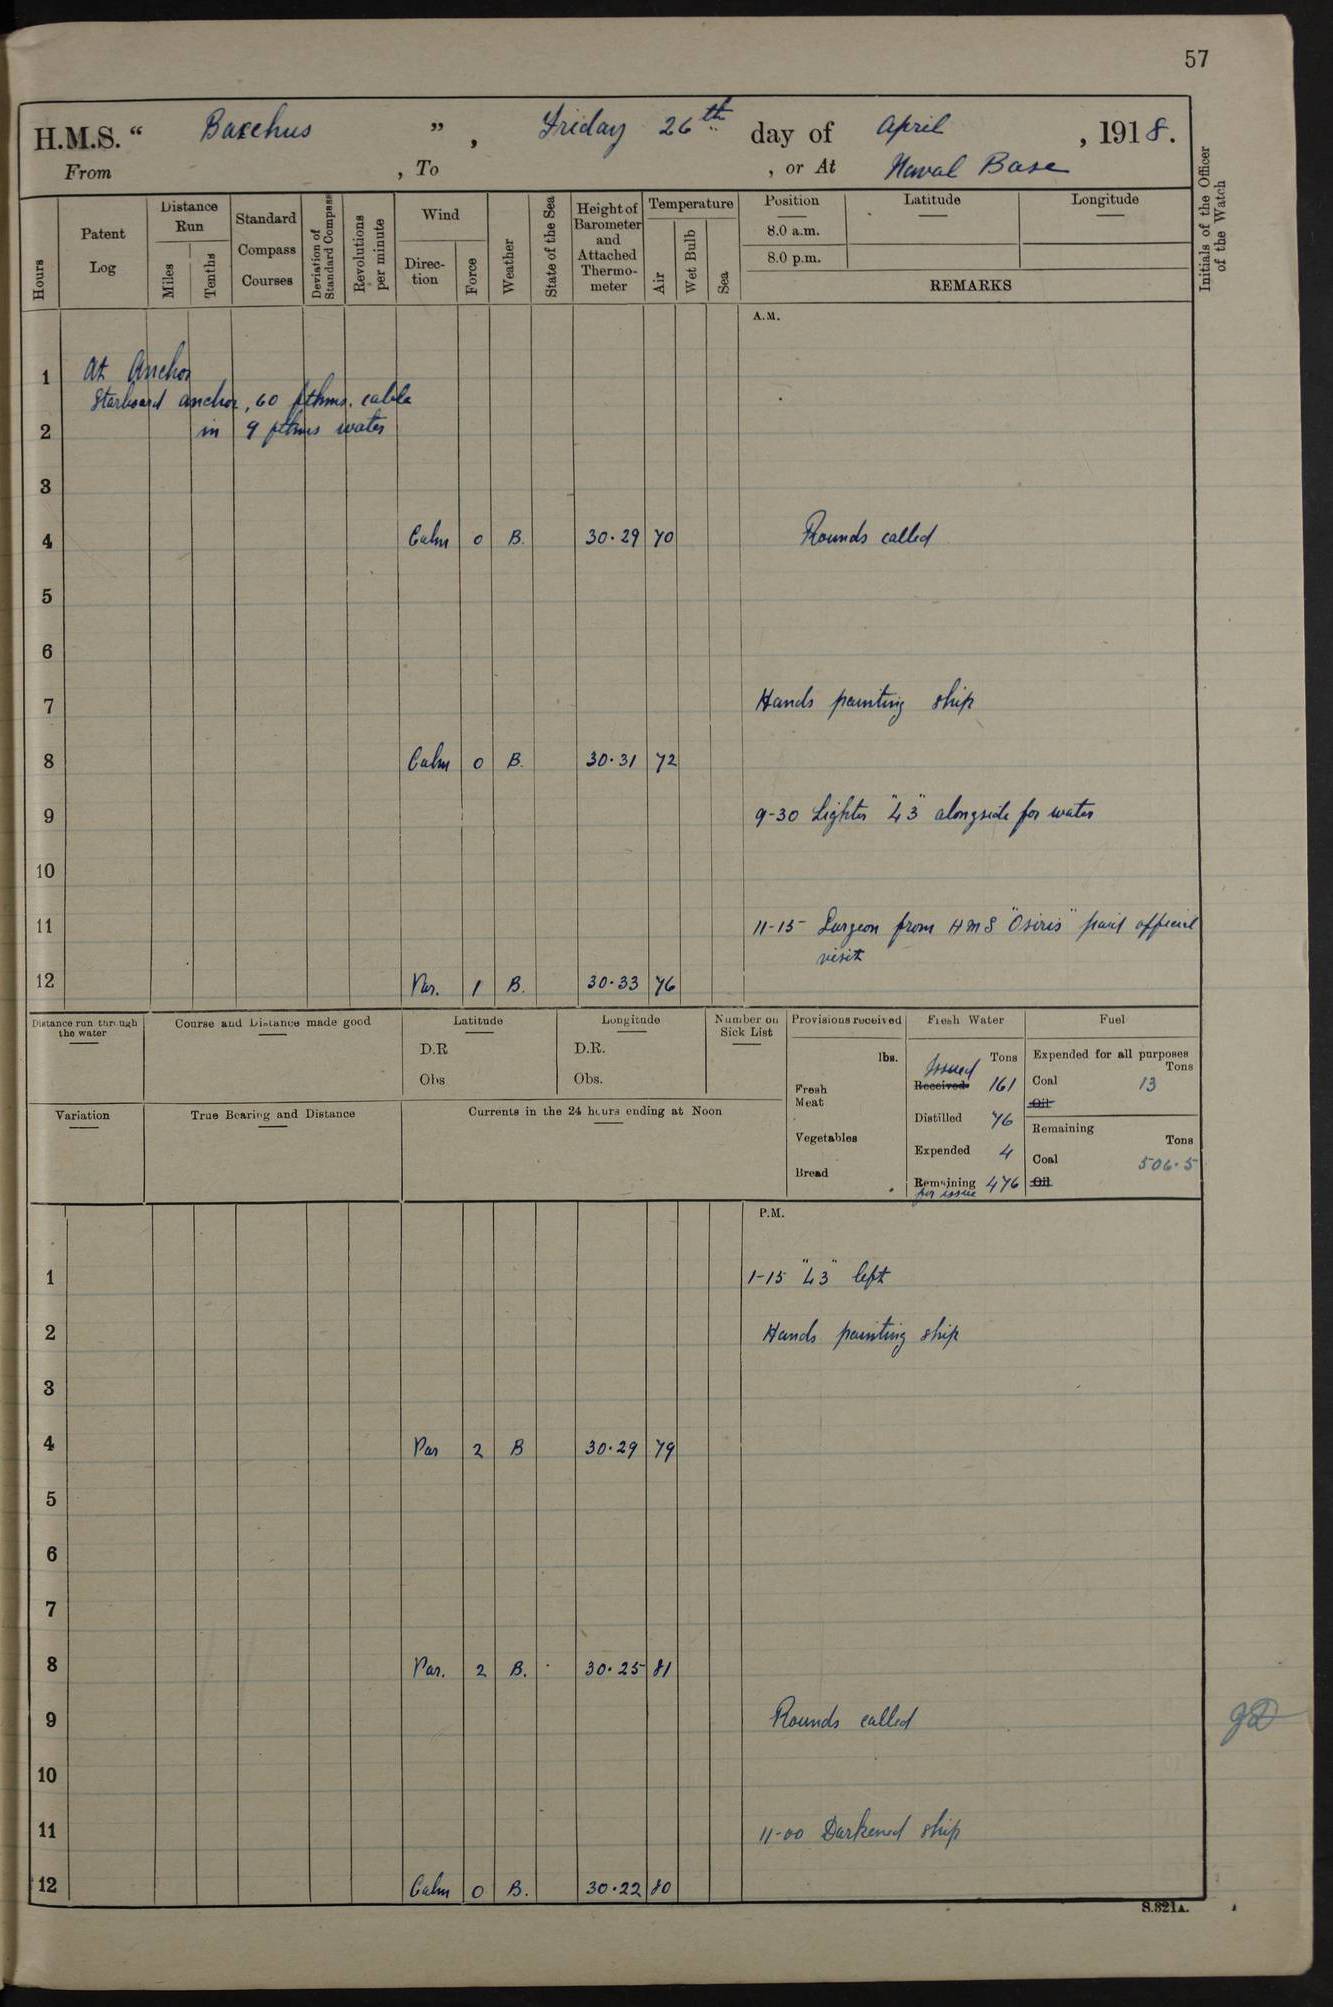 57
H.M.S. “ Bacchus ” , Friday 26th day of April , 1918.
From , To , or At Naval Base
Hours
Patent Log
Distance Run
Miles
Tenths
Standard Compass Courses
Deviation of Standard Compass
Revolutions per minute
Wind
Direction
Force
Weather
State of the Sea
Height of Barometer and Attached Thermometer
Temperature
Air
Wet Bulb
Sea
Position Latitude Longitude
8.0 a.m.
8.0 p.m.
REMARKS
Initials of the Officer of the Watch
A.M.
1 At Anchor
Starboard anchor, 60 fthms. cable
2 in 9 fthms water
3
4 Calm 0 B. 30.29 70 Rounds called
5
6
7 Hands painting ship
8 Calm 0 B. 30.31 72
9 9-30 Lighter "L3" alongside for water
10
11 11-15 Surgeon from HMS "Osiris" paid official
visit
12 Var. 1 B. 30.33 76
Distance run through the water
Course and Distance made good
Latitude
D.R
Obs
Longitude
D.R.
Obs.
Number on Sick List
Variation
True Bearing and Distance
Currents in the 24 hours ending at Noon
Provisions received
lbs.
Fresh Meat
Vegetables
Bread
Fresh Water
Tons
Issued
Received 161
Distilled 76
Expended 4
Remaining 476
for issue
Fuel
Expended for all purposes
Tons
Coal 13
Oil
Remaining
Tons
Coal 506.5
Oil
P.M.
1 1-15 "L3" left
2 Hands painting ship
3
4 Var 2 B 30.29 79
5
6
7
8 Var. 2 B. 30.25 81
9 Rounds called
10
11 11-00 Darkened ship
12 Calm 0 B. 30.22 80
S.321A.